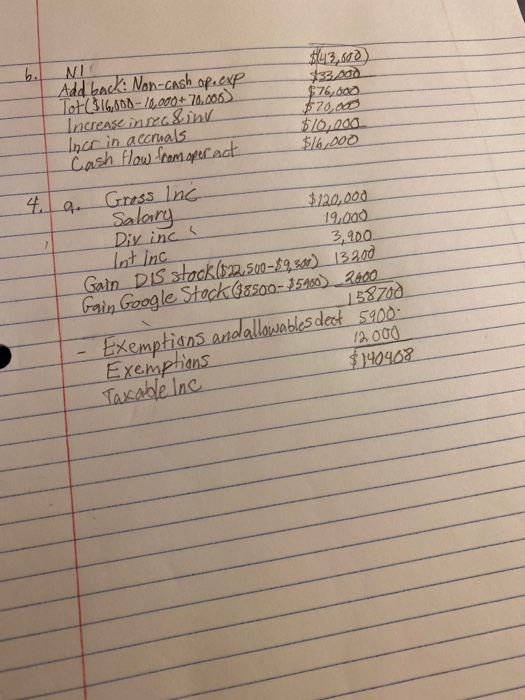 b. NI $(43,000)
Add back: Non-cash op. exp $33,000
Tot ($16,000-10,000+70,000) $76,000
Increase in rec & inv $70,000
Incr in accruals $10,000
Cash flow from oper act $16,000
4. a. Gross Inc
Salary $120,000
Div inc 19,000
Int inc 3,900
Gain DIS stock ($22,500-$9,300) 13200
Gain Google Stock ($8500-$5900) 2600
158700
- Exemptions and allowables dect 5900
Exemptions 12000
Taxable Inc $140408